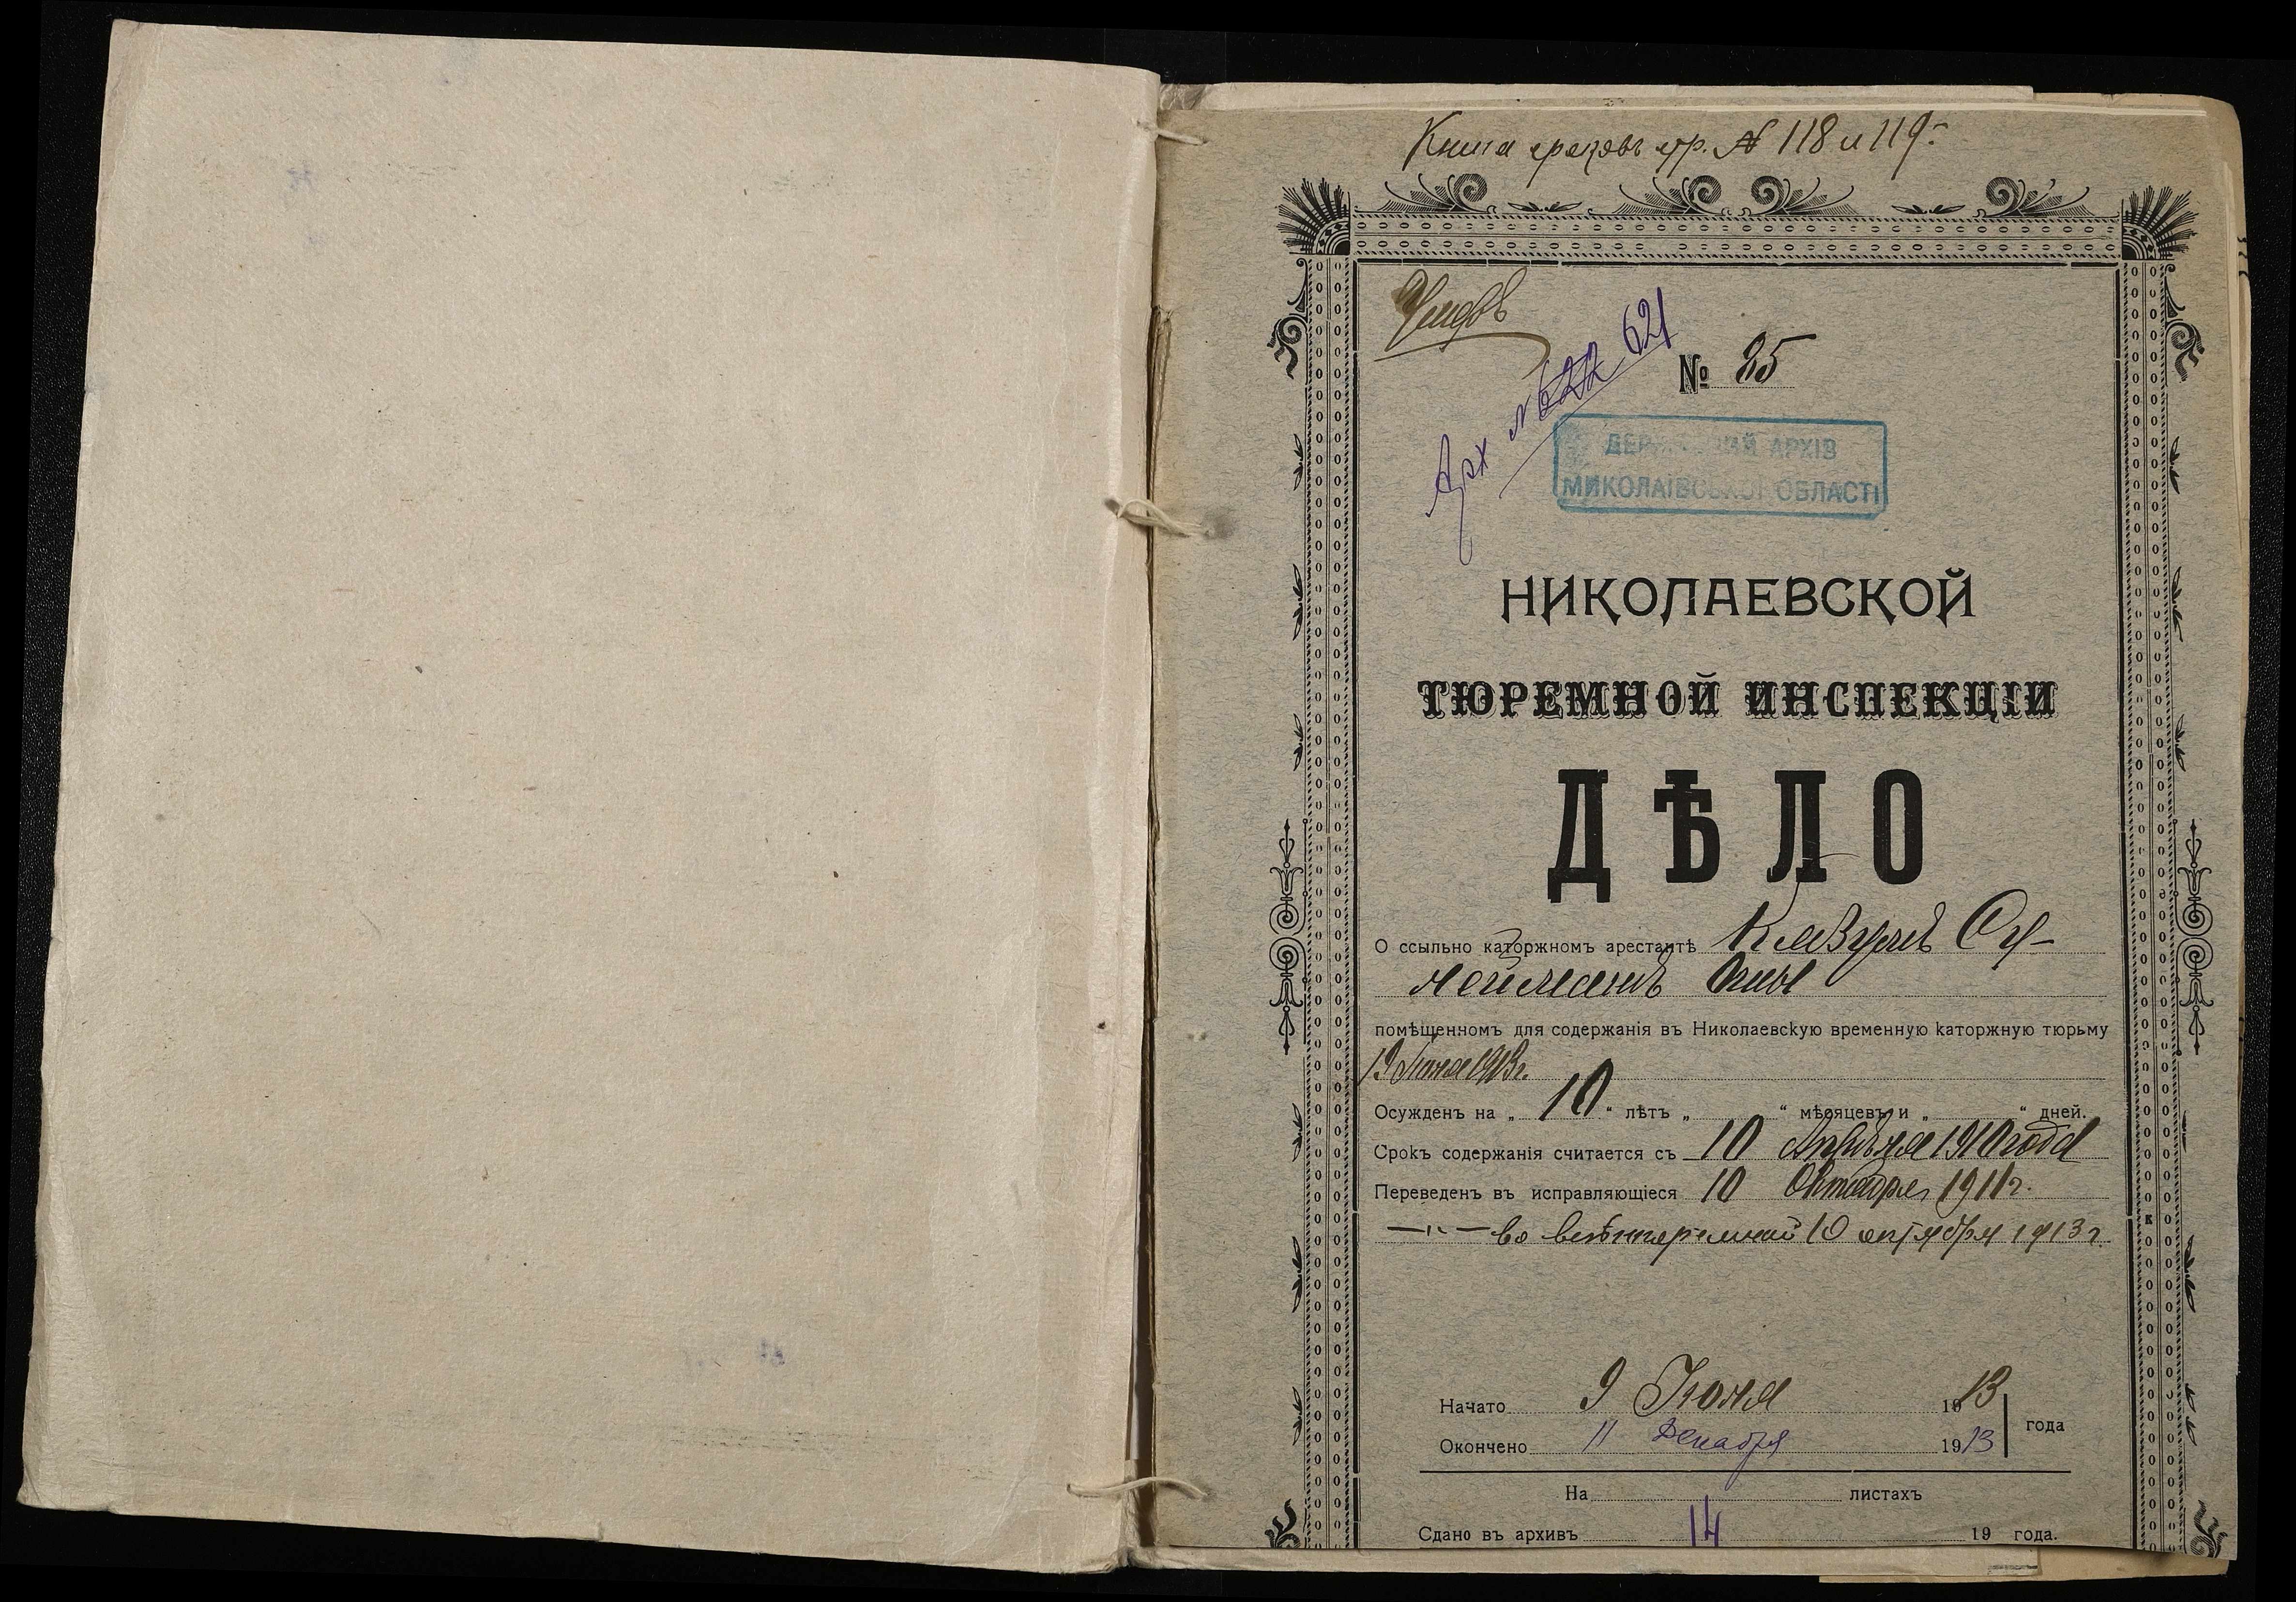 Книга сроковъ стр. № 118 и 119.
Арх № 622 621
№ 25
ДЕРЖАВНИЙ АРХІВ
МИКОЛАЇВСЬКОЇ ОБЛАСТІ
НИКОЛАЕВСКОЙ
ТЮРЕМНОЙ ИНСПЕКЦІИ
ДѢЛО
О ссыльно каторжномъ арестантѣ Су-
лейманъ Оглы
помѣщенномъ для содержанія въ Николаевскую временную каторжную тюрьму
1913 г.
Осужденъ на „ 10 “ лѣтъ „ “ мѣсяцевъ и „ “ дней.
Срокъ содержанія считается съ 10 Апрѣля 1910 года
Переведенъ въ исправляющіеся 10 Октября 1911 г.
—"— во внѣтюремный 10 октября 1913 г.
Начато 9 Іюня 1913
года
Окончено 11 Декабря 1913
На листахъ
Сдано въ архивъ 14 19 года.